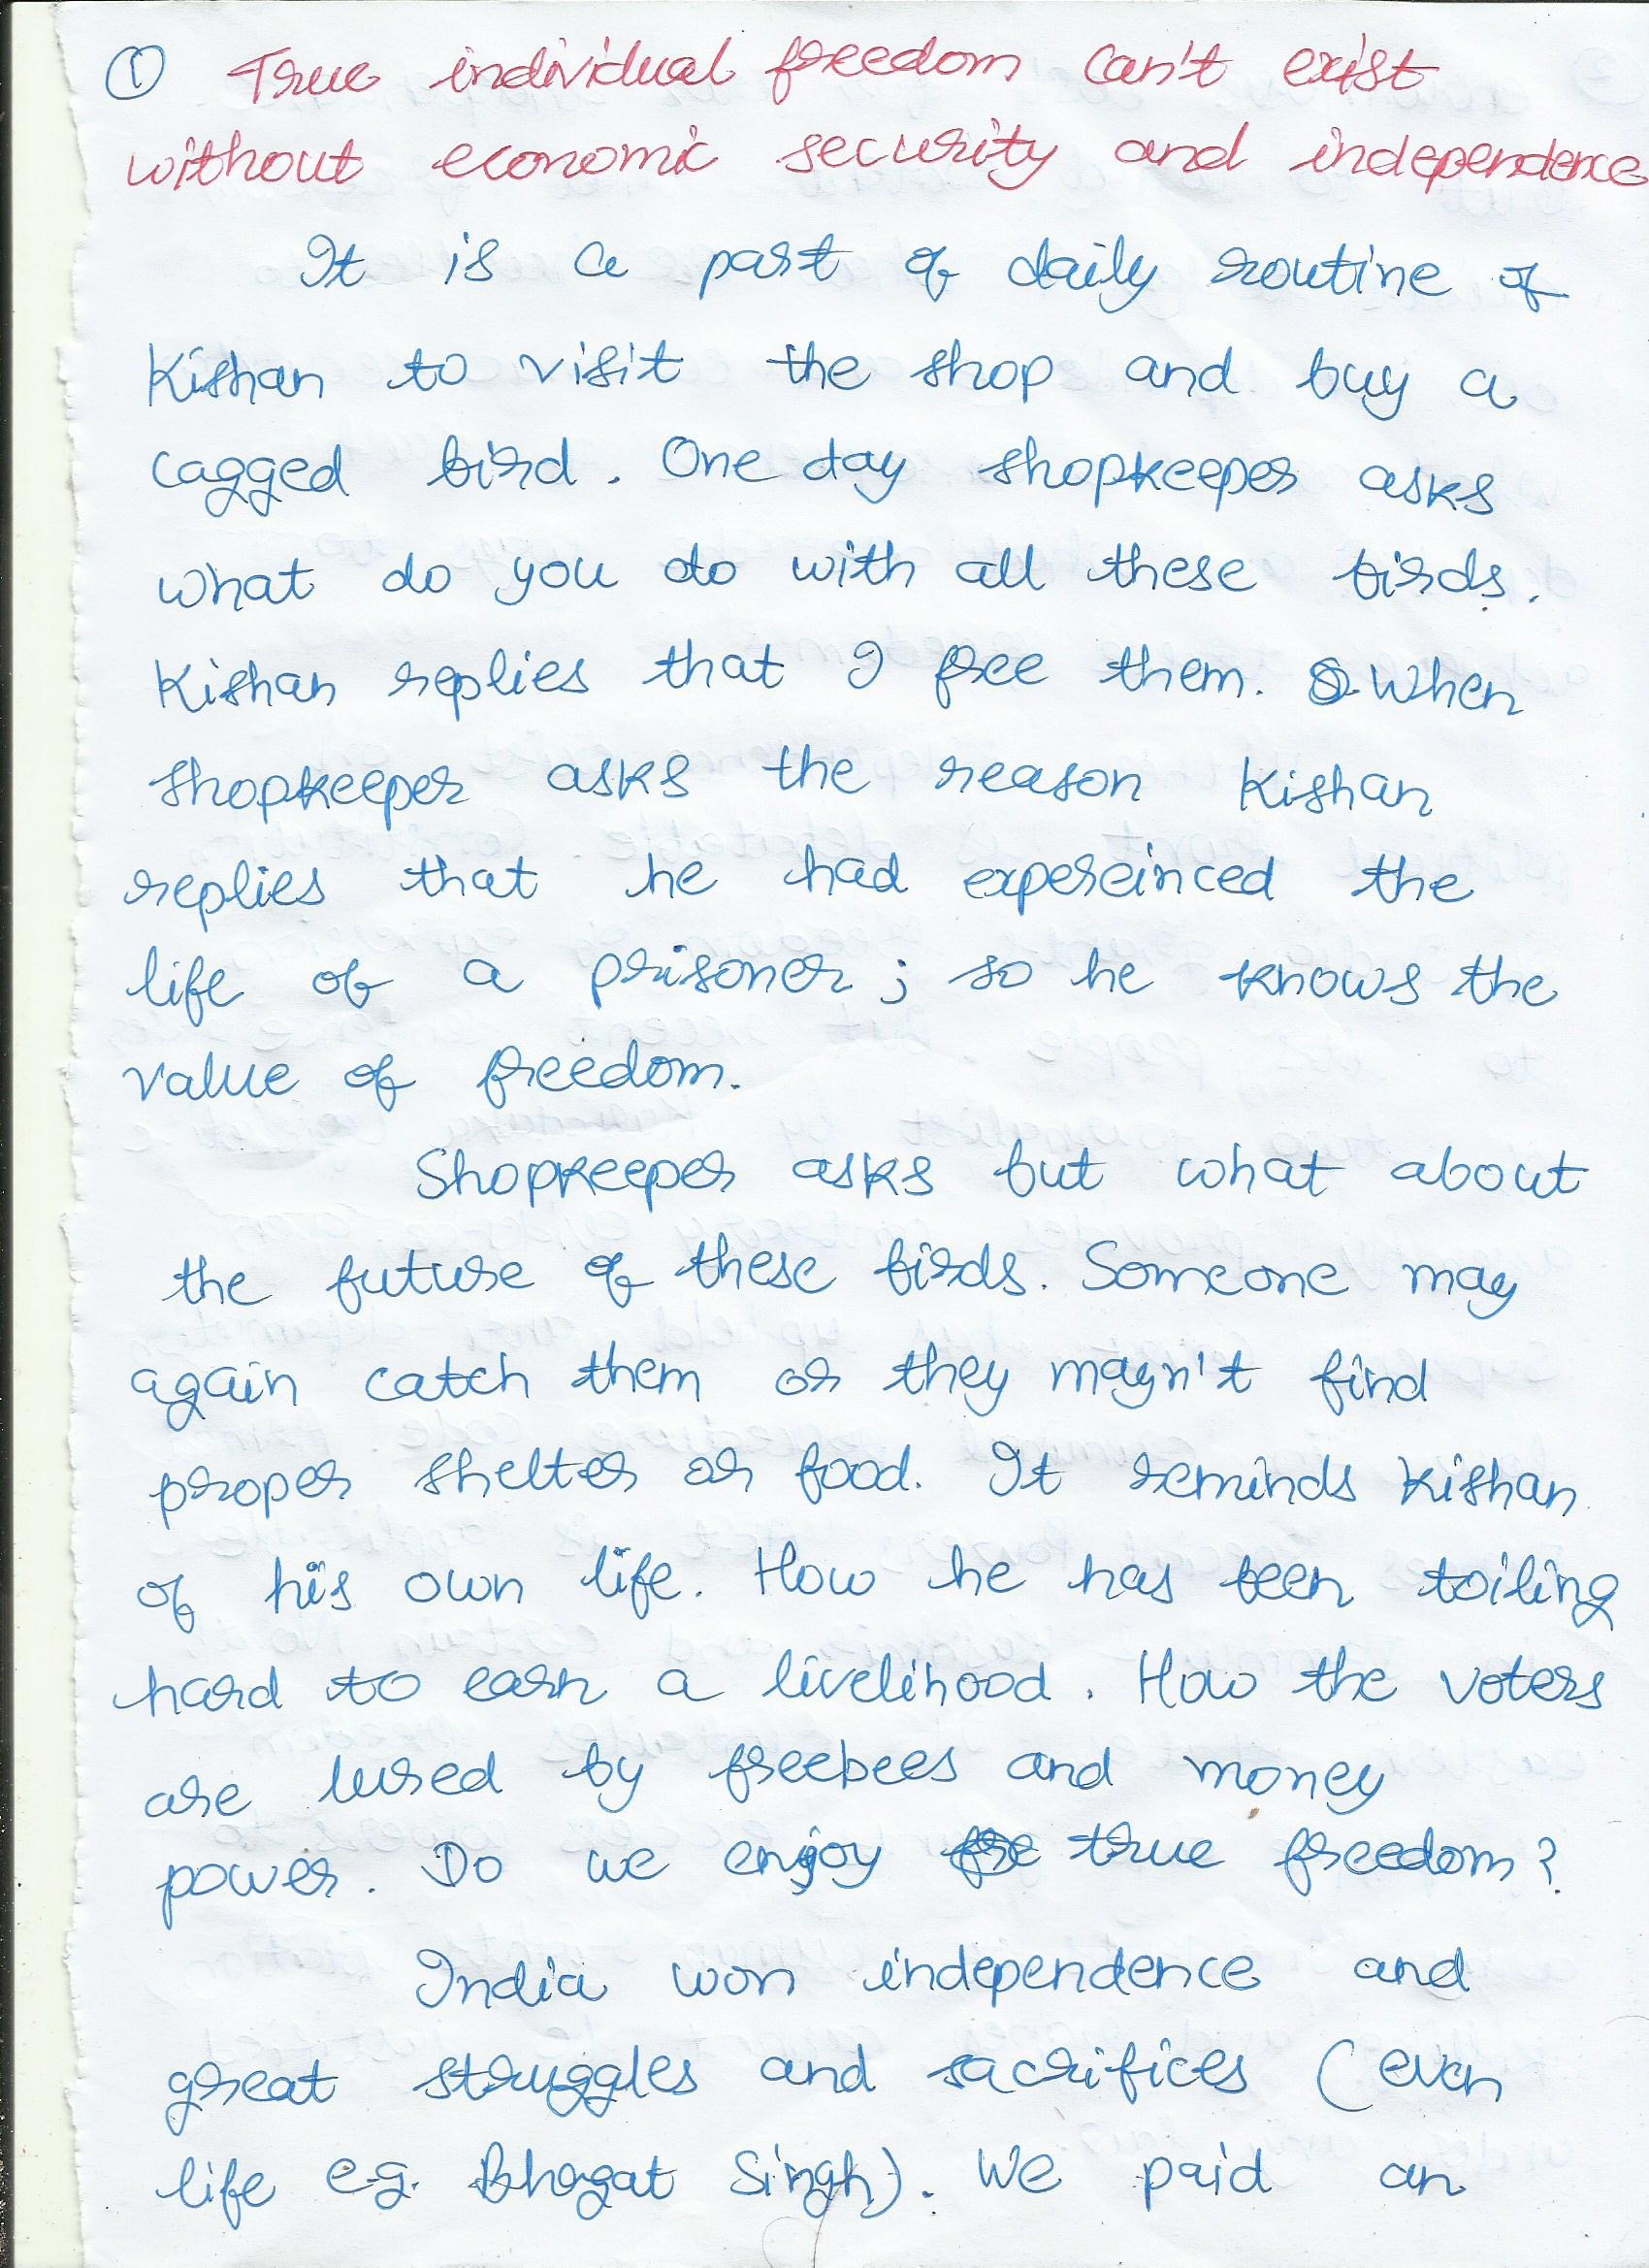 ① True individual freedom can't exist
without economic security and independence
It is a part of daily routine of
Kishan to visit the shop and buy a
cagged bird. One day shopkeeper asks
what do you do with all these birds.
Kishan replies that I free them. When
shopkeeper asks the reason Kishan
replies that he had expereinced the
life of a prisoner; so he knows the
value of freedom.
Shopkeeper asks but what about
the future of these birds. Someone may
again catch them or they mayn't find
proper shelter or food. It reminds Kishan
of his own life. How he has been toiling
hard to earn a livelihood. How the voters
are lured by freebees and money
power. Do we enjoy true freedom?
India won independence and
great struggles and sacrifices (even
life e.g. Bhagat Singh). We paid an